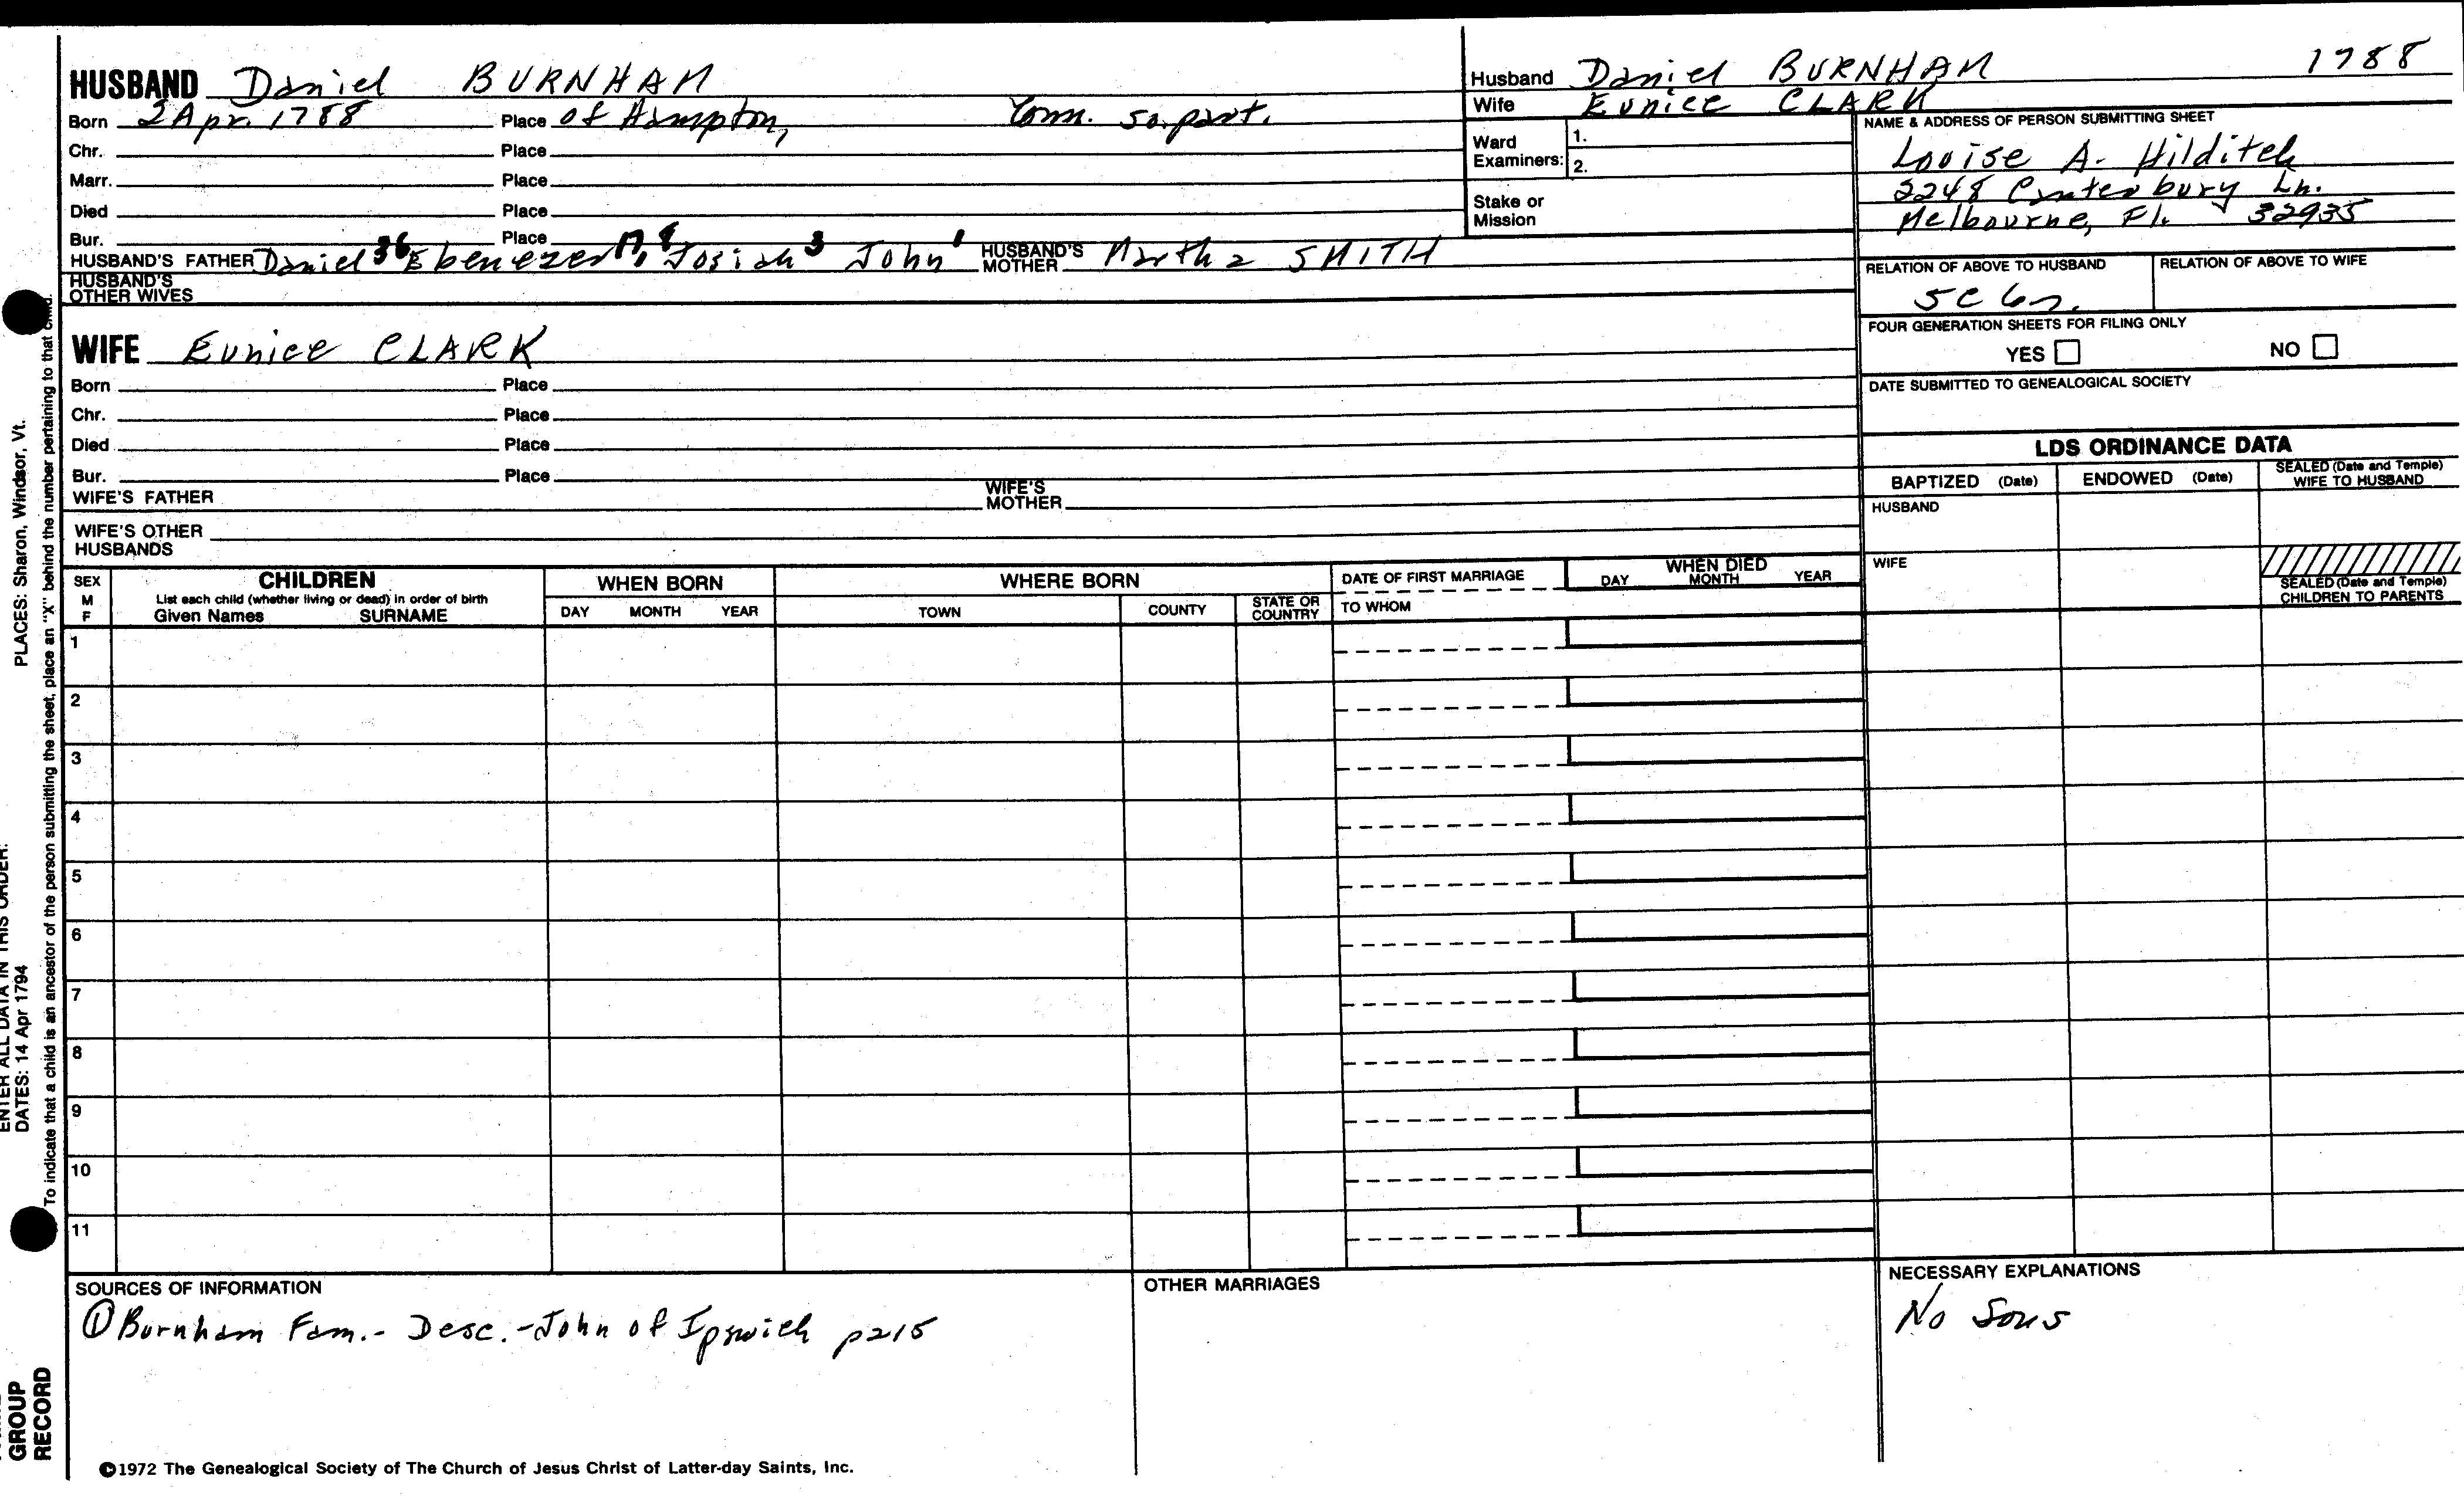 HUSBAND Daniel BURNHAM
Born 2 Apr. 1788 Place of Hampton, Conn. so. part.
Chr. Place
Marr. Place
Died Place
Bur. Place
HUSBAND'S FATHER Daniel Ebenezer Josiah 3 John 1 HUSBAND'S MOTHER Martha SMITH
HUSBAND'S OTHER WIVES
WIFE Eunice CLARK
Born Place
Chr. Place
Died Place
Bur. Place
WIFE'S FATHER WIFE'S MOTHER
WIFE'S OTHER HUSBANDS
Husband Daniel BURNHAM 1788
Wife Eunice CLARK
Ward Examiners: 1.
2.
Stake or Mission
NAME & ADDRESS OF PERSON SUBMITTING SHEET
Louise A. Hilditch
2248 Canterbury Ln.
Melbourne, Fl. 32935
RELATION OF ABOVE TO HUSBAND RELATION OF ABOVE TO WIFE
5C
FOUR GENERATION SHEETS FOR FILING ONLY
YES NO
DATE SUBMITTED TO GENEALOGICAL SOCIETY
LDS ORDINANCE DATA
BAPTIZED (Date) ENDOWED (Date) SEALED (Date and Temple) WIFE TO HUSBAND
HUSBAND
WIFE
SEALED (Date and Temple) CHILDREN TO PARENTS
SEX M F
CHILDREN
List each child (whether living or dead) in order of birth
Given Names SURNAME
WHEN BORN
DAY MONTH YEAR
WHERE BORN
TOWN COUNTY STATE OR COUNTRY
DATE OF FIRST MARRIAGE
TO WHOM
WHEN DIED
DAY MONTH YEAR
1
2
3
4
5
6
7
8
9
10
11
SOURCES OF INFORMATION
① Burnham Fam.- Desc.-John of Ipswich p215
OTHER MARRIAGES
NECESSARY EXPLANATIONS
No Sons
©1972 The Genealogical Society of The Church of Jesus Christ of Latter-day Saints, Inc.
GROUP RECORD
ENTER ALL DATA IN THIS ORDER:
DATES: 14 Apr 1794
PLACES: Sharon, Windsor, Vt.
To indicate that a child is an ancestor of the person submitting the sheet, place an "X" behind the number pertaining to that child.